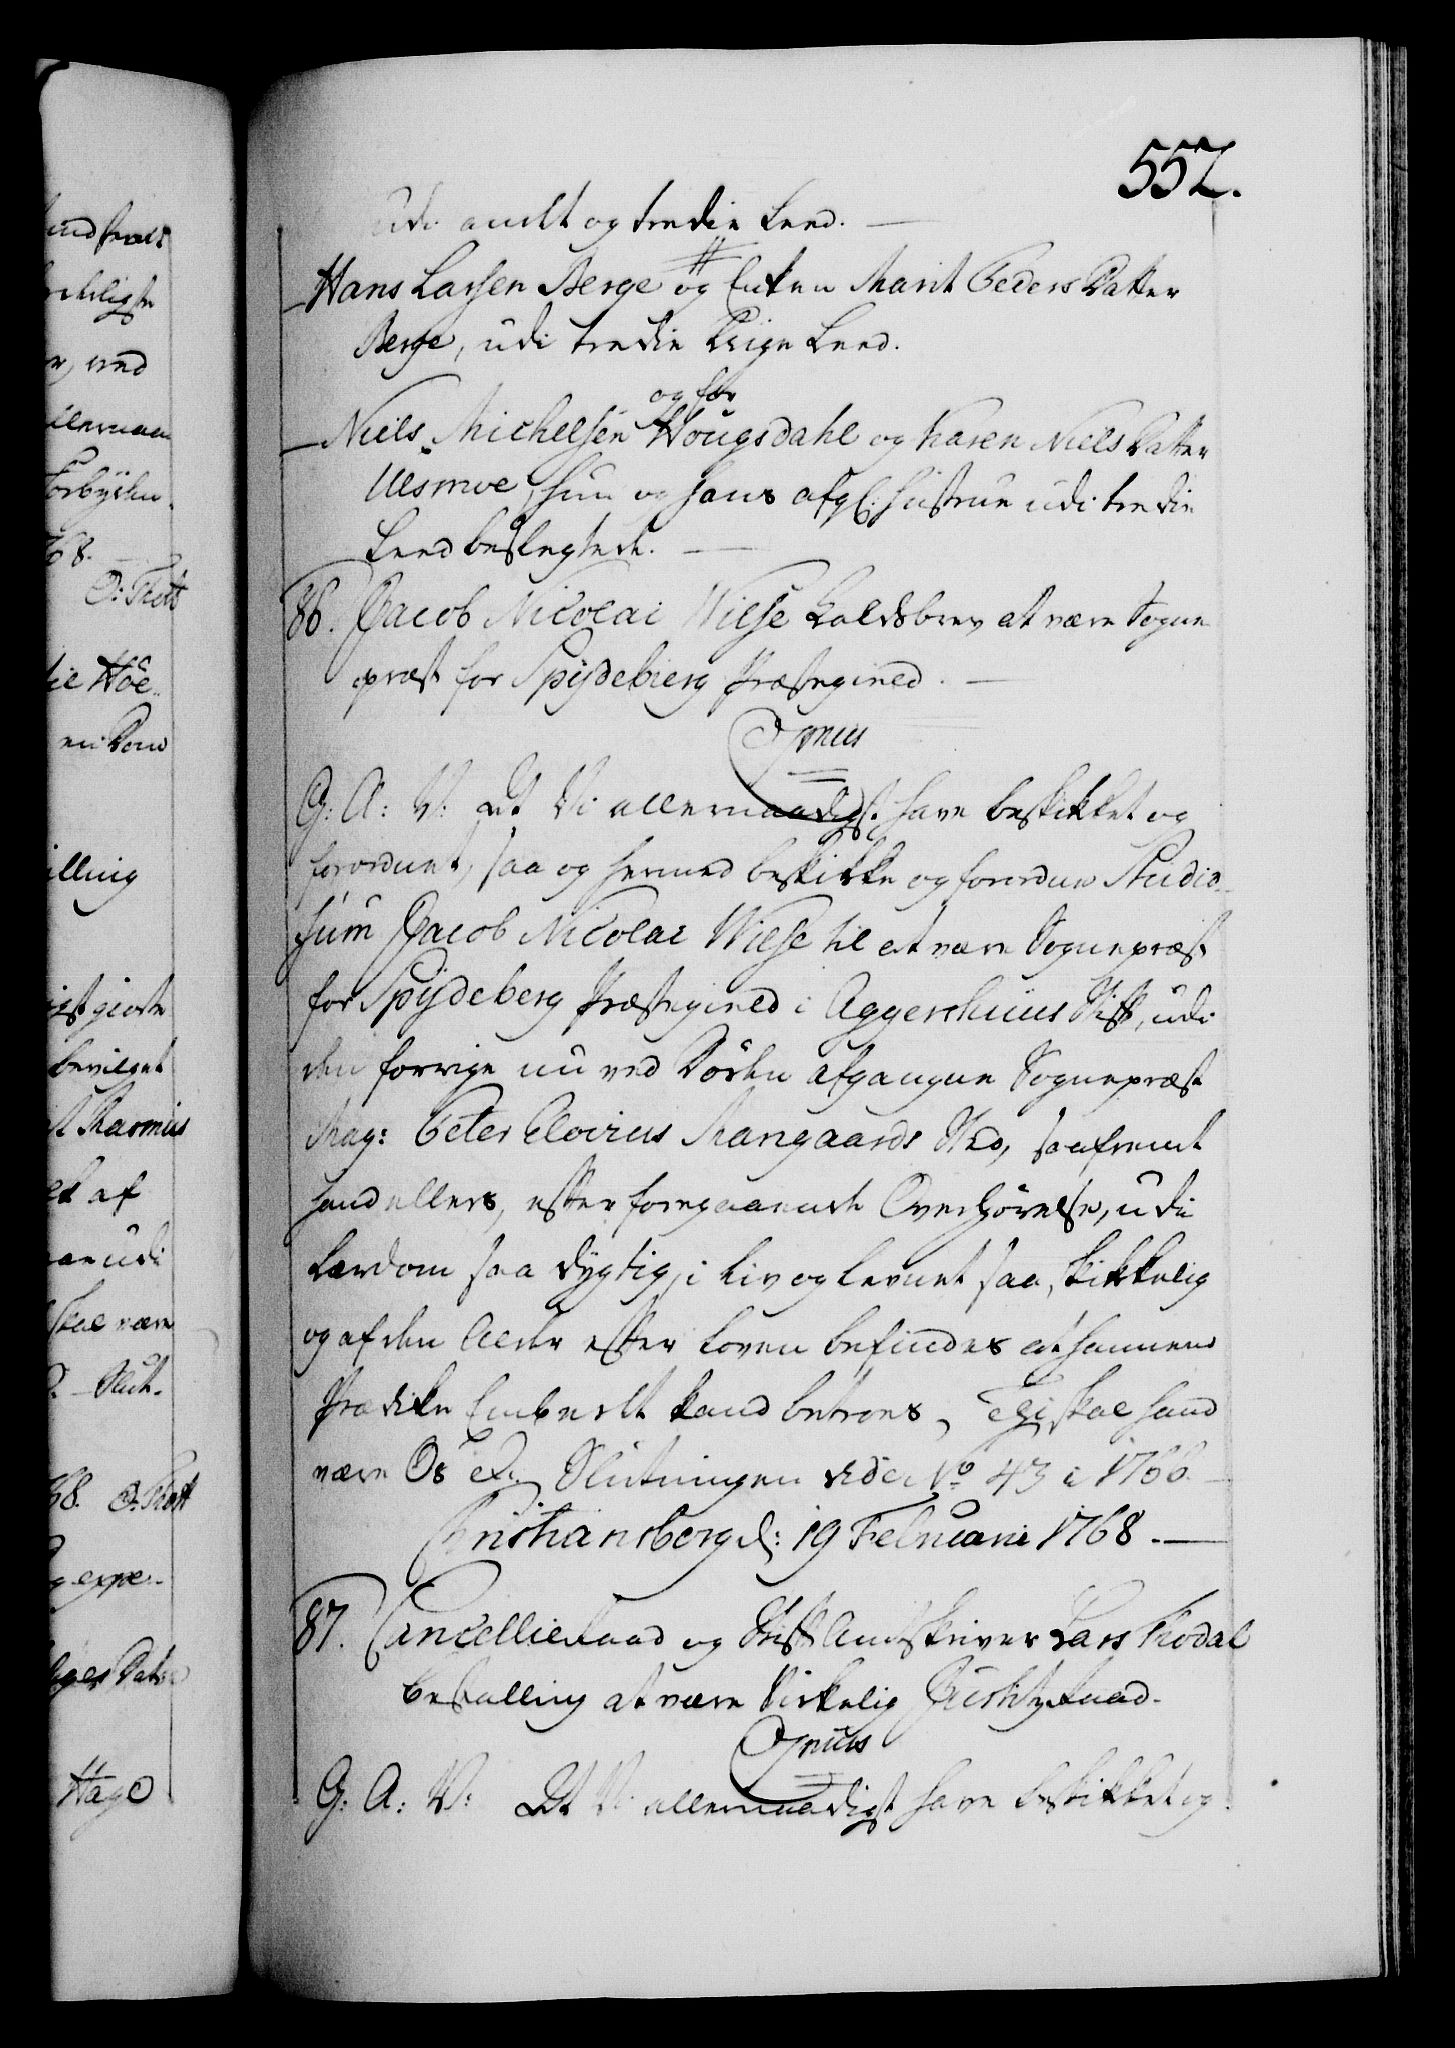 552.
udi andet og tredie Leed. —
Hans Larsen Berge og Enken Marit Peders Datter
Berge, udi tredie Liige Leed.
og for
Niels Michelsen Hougsdahl og Karen Niels Datter
Uesmoe, hun og hans afg: Hustrue udi tredie
Leed beslegtede. —
86. Jacob Nicolai Wilse Kaldsbrev at være Sogne
præst for Spydebierg Præstegield. —
Gratis
G: A: V: At Vi allernaadigst have beskikket og
forordnet, saa og hermed beskikke og forordne Studio-
sum Jacob Nicolai Wilse til at være Sognepræst
for Spydeberg Præstegield i Aggershuus Stift, udi
den forrige nu ved Døden afgangne Sognepræst
Mag: Peter Elovius Mangaards Sted, saafremt
hand ellers, efter foregaaende Overhørelse, udi
Lærdom saa dygtig, i Liv og Levnet saa skikkelig
og af den Alder efter Loven befindes at hannem
Prædike Embedet kand betroes, Thi skal hand
være Os &c. Slutningen vide No 43 i 1766. —
Christiansberg d: 19 Februarii 1768. —
87. Cancellieraad og Stift Amtskriver Lars
Bestalling at være Virkelig Justitzraad.
G: A: V: At Vi allernaadigst have beskikket og